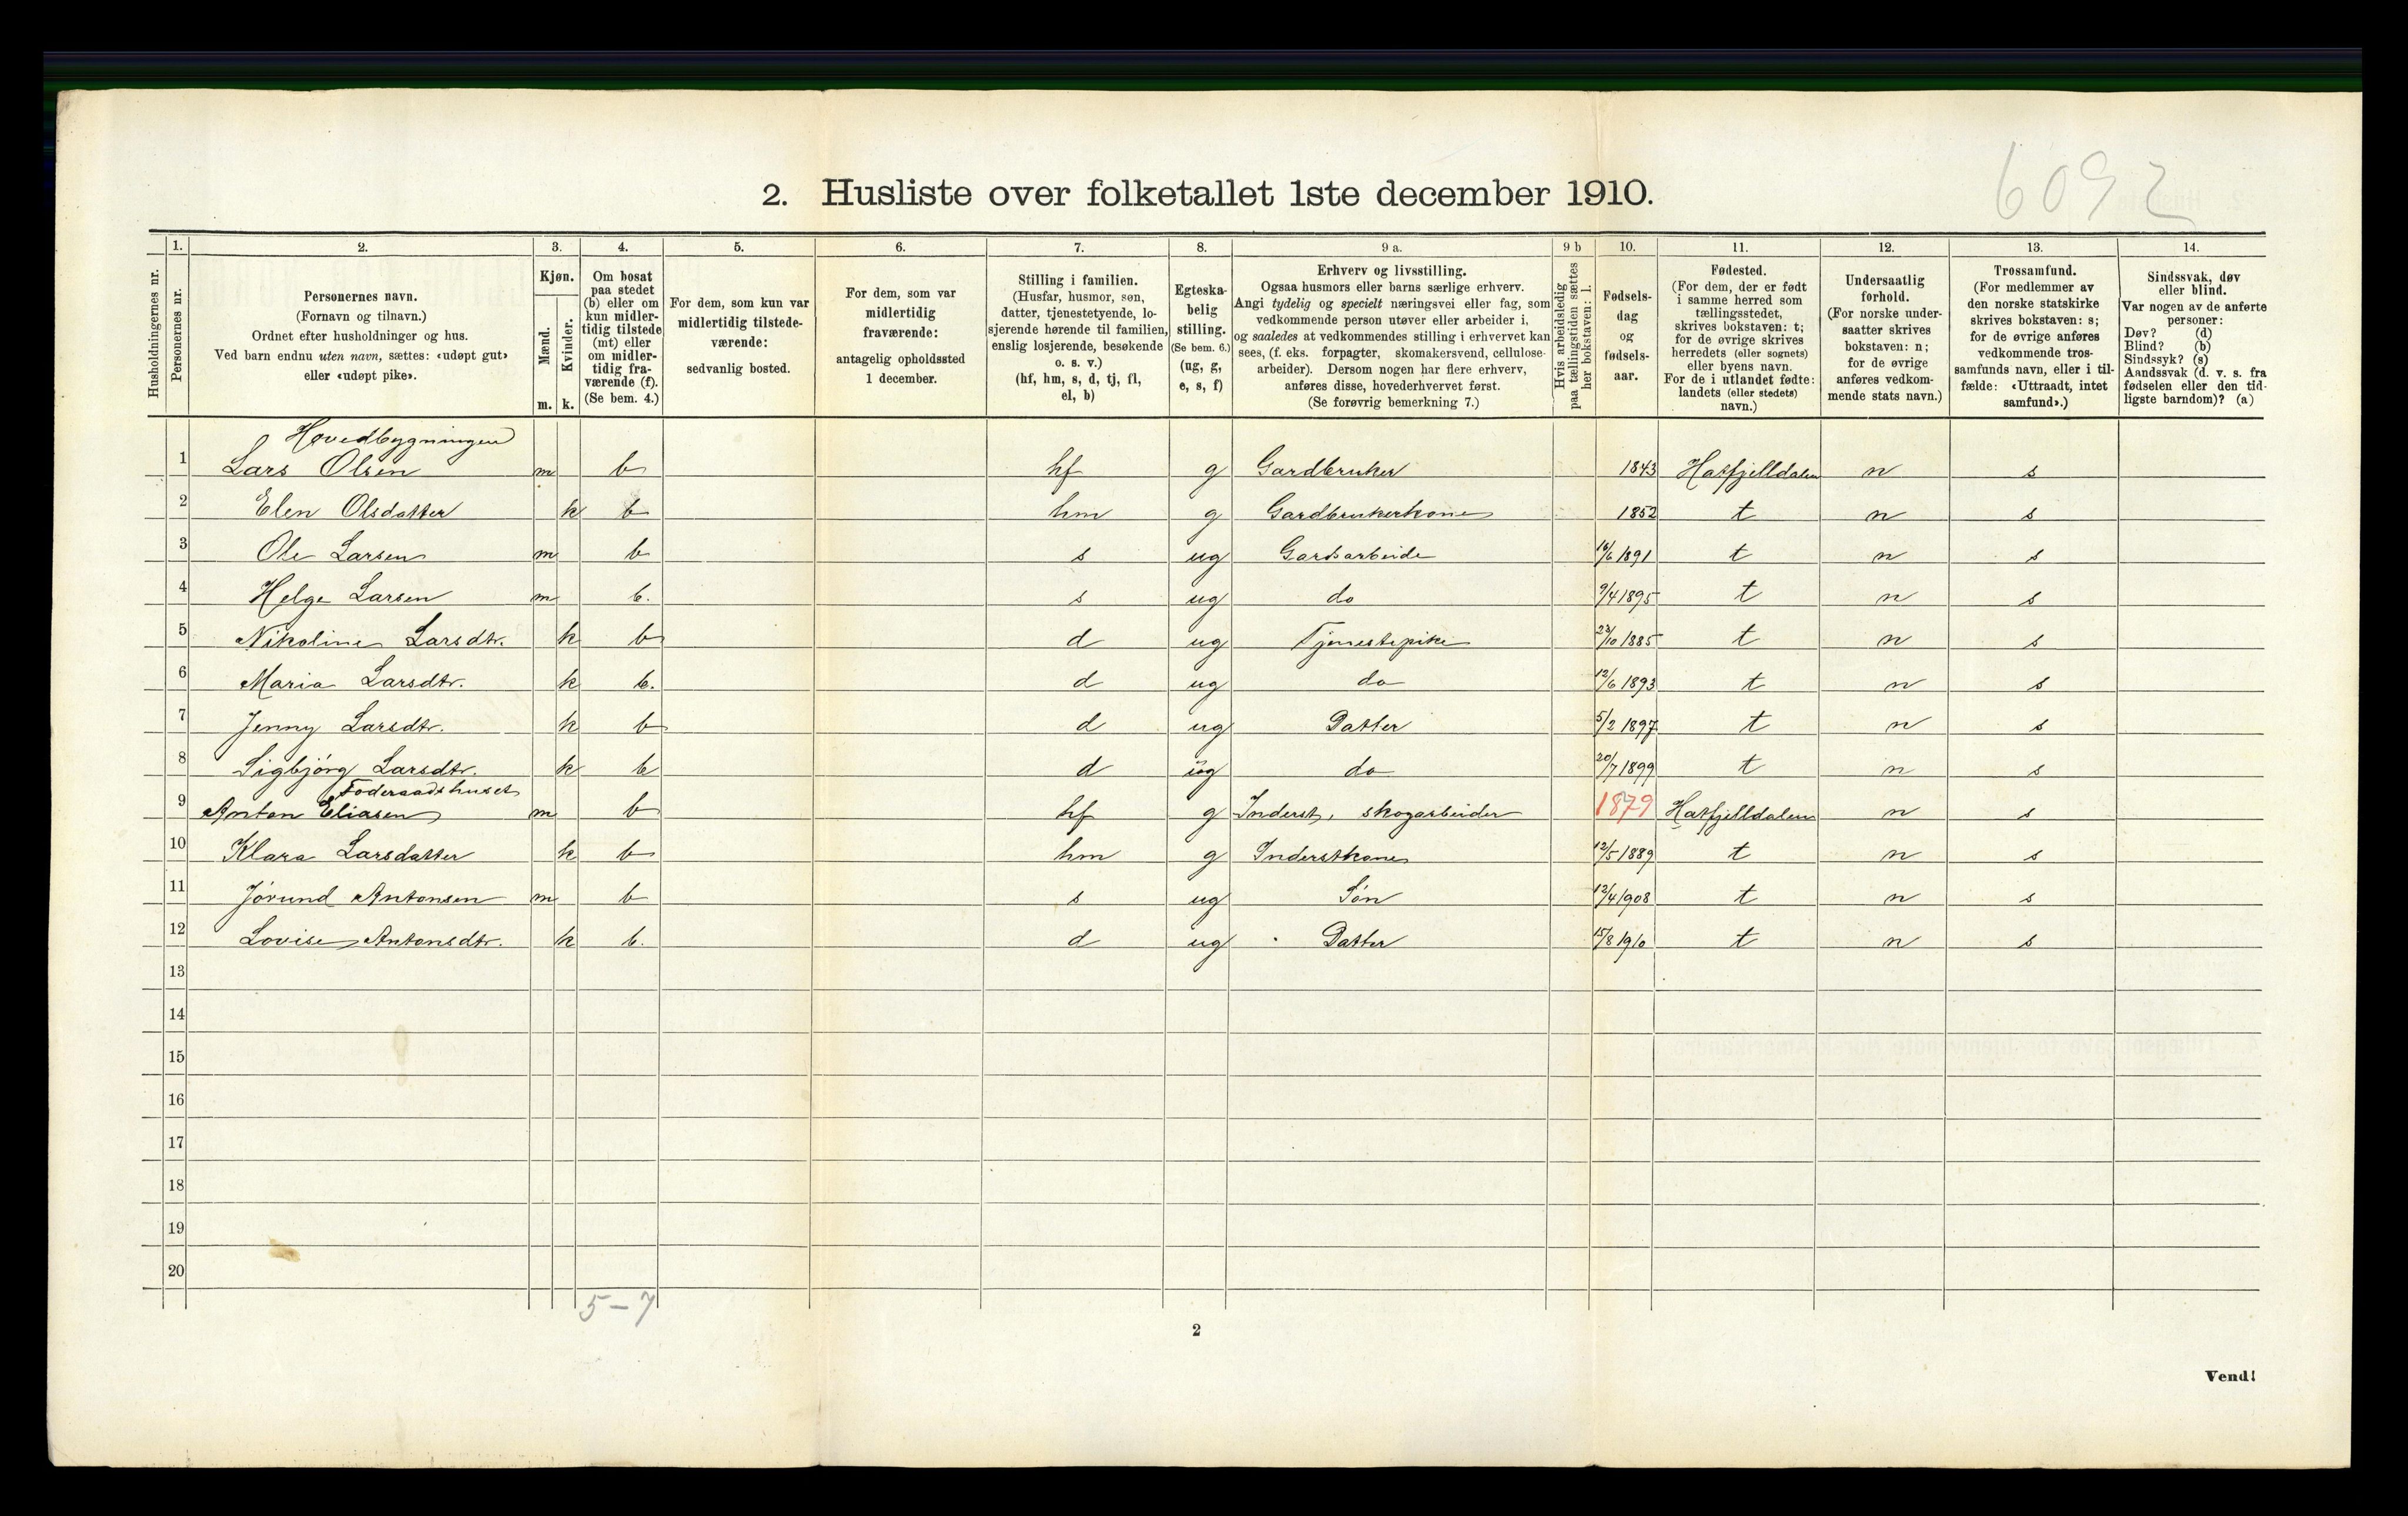 6092
2. Husliste over folketallet 1ste december 1910.
Husholdningernes nr.
1. Personernes nr.
2. Personernes navn. (Fornavn og tilnavn.) Ordnet efter husholdninger og hus. Ved barn endnu uten navn, sættes: «udøpt gut» eller «udøpt pike».
3. Kjøn. Mænd. m. Kvinder. k.
4. Om bosat paa stedet (b) eller om kun midlertidig tilstede (mt) eller om midlertidig fraværende (f). (Se bem. 4.)
5. For dem, som kun var midlertidig tilstedeværende: sedvanlig bosted.
6. For dem, som var midlertidig fraværende: antagelig opholdssted 1 december.
7. Stilling i familien. (Husfar, husmor, søn, datter, tjenestetyende, losjerende hørende til familien, enslig losjerende, besøkende o. s. v.) (hf, hm, s, d, tj, fl, el, b)
8. Egteskabelig stilling. (Se bem. 6.) (ug, g, e, s, f)
9 a. Erhverv og livsstilling. Ogsaa husmors eller barns særlige erhverv. Angi tydelig og specielt næringsvei eller fag, som vedkommende person utøver eller arbeider i, og saaledes at vedkommendes stilling i erhvervet kan sees, (f. eks. forpagter, skomakersvend, cellulosearbeider). Dersom nogen har flere erhverv, anføres disse, hovederhvervet først. (Se forøvrig bemerkning 7.)
9 b Hvis arbeidsledig paa tællingstiden sættes her bokstaven: l.
10. Fødselsdag og fødselsaar.
11. Fødested. (For dem, der er født i samme herred som tællingsstedet, skrives bokstaven: t; for de øvrige skrives herredets (eller sognets) eller byens navn. For de i utlandet fødte: landets (eller stedets) navn.)
12. Undersaatlig forhold. (For norske undersaatter skrives bokstaven: n; for de øvrige anføres vedkommende stats navn.)
13. Trossamfund. (For medlemmer av den norske statskirke skrives bokstaven: s; for de øvrige anføres vedkommende trossamfunds navn, eller i tilfælde: «Uttraadt, intet samfund».)
14. Sindssvak, døv eller blind. Var nogen av de anførte personer: Døv? (d) Blind? (b) Sindssyk? (s) Aandssvak (d. v. s. fra fødselen eller den tidligste barndom)? (a)
Hovedbygningen
1 Lars Olsen m b hf g Gardbruker 1843 Hatfjelldalen n s
2 Elen Olsdatter k b hm g Gardbrukerkone 1852 t n s
3 Ole Larsen m b s ug Gardsarbeide 16/6 1891 t n s
4 Helge Larsen m b. s ug do 9/4 1895 t n s
5 Nikoline Larsdtr. k b d ug Tjenestepike 23/10 1885 t n s
6 Maria Larsdtr. k b. d ug do 12/6 1893 t n s
7 Jenny Larsdtr. k b d ug Datter 5/2 1897 t n s
8 Sigbjørg Larsdtr. k b d ug do 20/7 1899 t n s
Føderaadshuset
9 Anton Eliasen m b hf g Inderst, skogarbeider 1879 Hatfjelldalen n s
10 Klara Larsdatter k b hm g Inderstkone 12/5 1889 t n s
11 Jørund Antonsen m b s ug Søn 12/4 1908 t n s
12 Lovise Antonsdtr. k b. d ug Datter 15/8 1910 t n s
13
14
15
16
17
18
19
20
5-7
2
Vend!